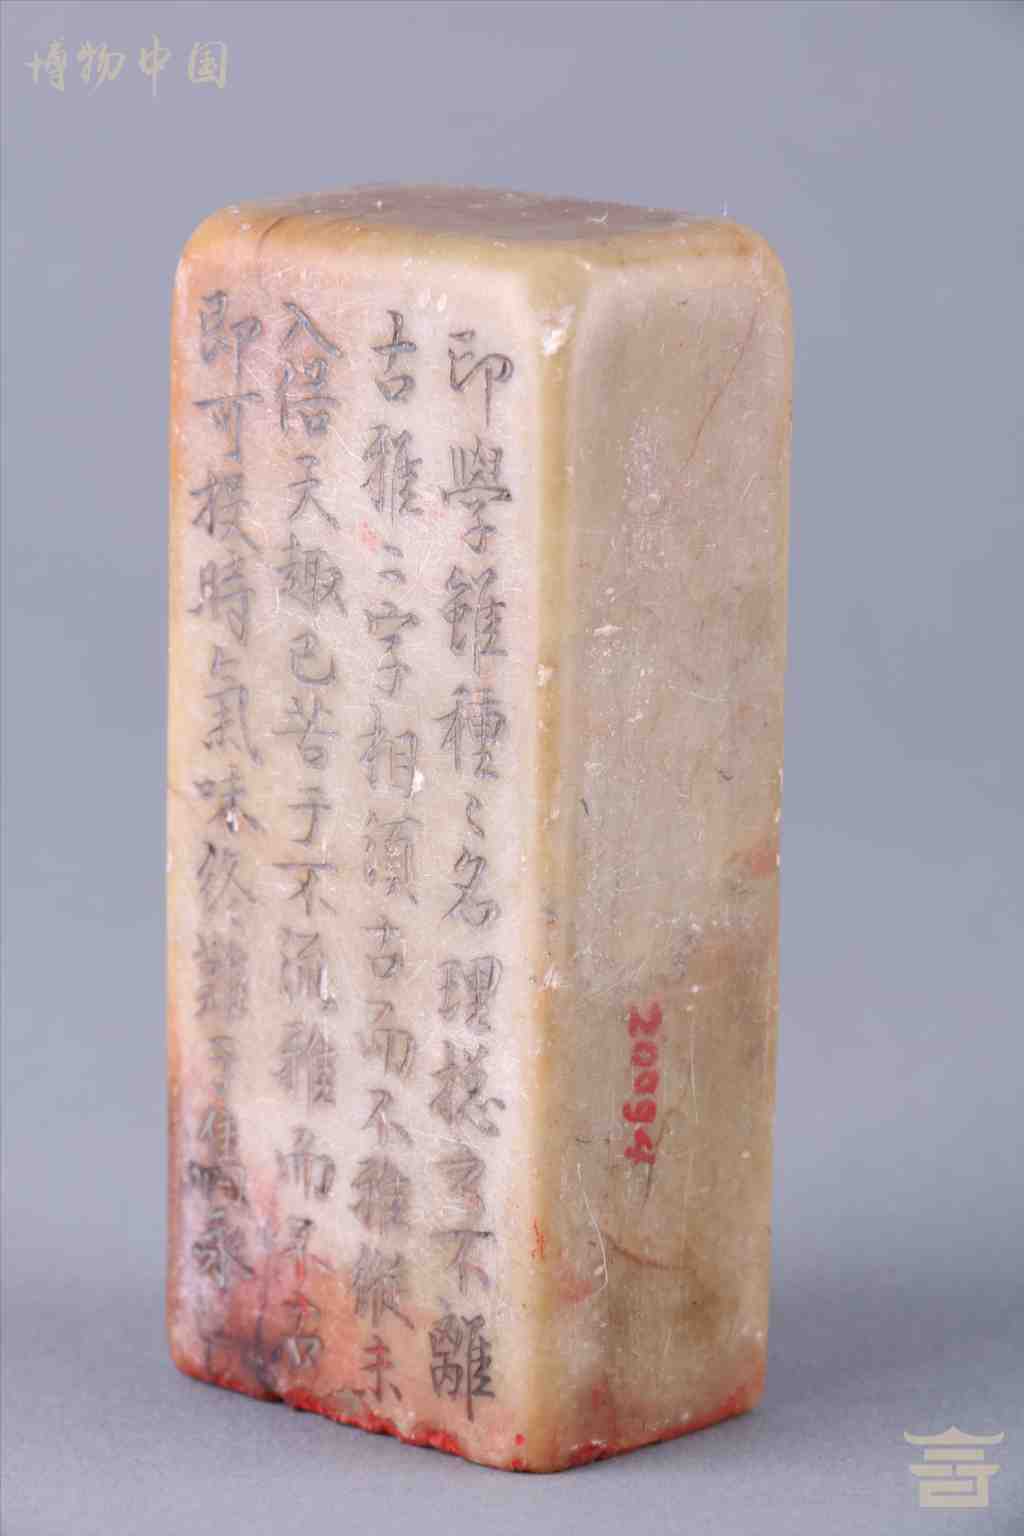 博物中国
印學雖種〻名理摠不離
古雅二字相須古而不雅縱未
入俗天趣已苦于不流雅而不古
即可投時氣味終難于雋永
20094